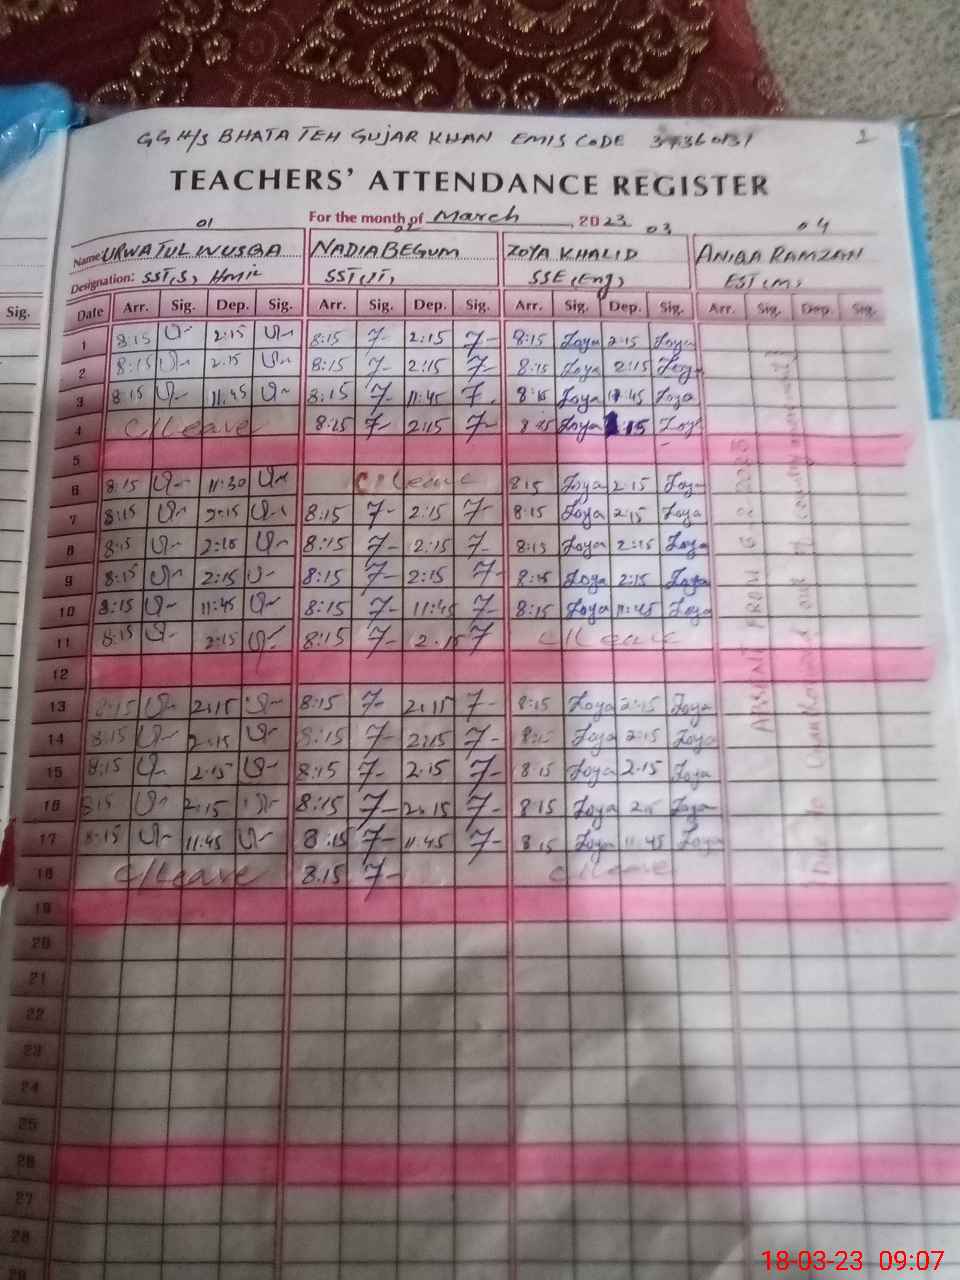 GGH/S BHATA TEH GUJAR KHAN EMIS CODE 1
TEACHERS' ATTENDANCE REGISTER
For the month of March, 2023
01 02 03 04
Name: URWATUL WUSQA NADIA BEGUM ZOYA KHALID ANIQA RAMZAN
Designation: SST(S) SST(IT) SSE(Eng) EST(M)
Sig. Date Arr. Sig. Dep. Sig. Arr. Sig. Dep. Sig. Arr. Sig. Dep. Sig. Arr. Sig. Dep. Sig.
1 8:15 2:15 8:15 2:15 8:15 Zoya 2:15 Zoya
2 8:15 2:15 8:15 2:15 8:15 Zoya 2:15 Zoya
3 8:15 11:45 8:15 11:45 8:15 Zoya 11:45 Zoya
4 C/Leave 8:15 2:15 8:15 Zoya :15 Zoya
5
6 8:15 11:30 C/Leave 8:15 Zoya 2:15 Zoya
7 8:15 2:15 8:15 2:15 8:15 Zoya 2:15 Zoya
8 8:15 2:15 8:15 2:15 8:15 Zoya 2:15 Zoya
9 8:15 2:15 8:15 2:15 8:15 Zoya 2:15 Zoya
10 8:15 11:45 8:15 11:45 8:15 Zoya 11:45 Zoya
11 8:15 2:15 8:15 2:15 C/Leave
12
13 8:15 2:15 8:15 2:15 8:15 Zoya 2:15 Zoya
14 8:15 2:15 8:15 2:15 8:15 Zoya 2:15 Zoya
15 8:15 2:15 8:15 2:15 8:15 Zoya 2:15 Zoya
16 8:15 2:15 8:15 2:15 8:15 Zoya 2:15 Zoya
17 8:15 11:45 8:15 11:45 8:15 Zoya 11:45 Zoya
18 C/Leave 8:15 C/Leave
19
20
21
22
23
24
25
26
27
28
29
ABSENT FROM
Due to
18-03-23 09:07